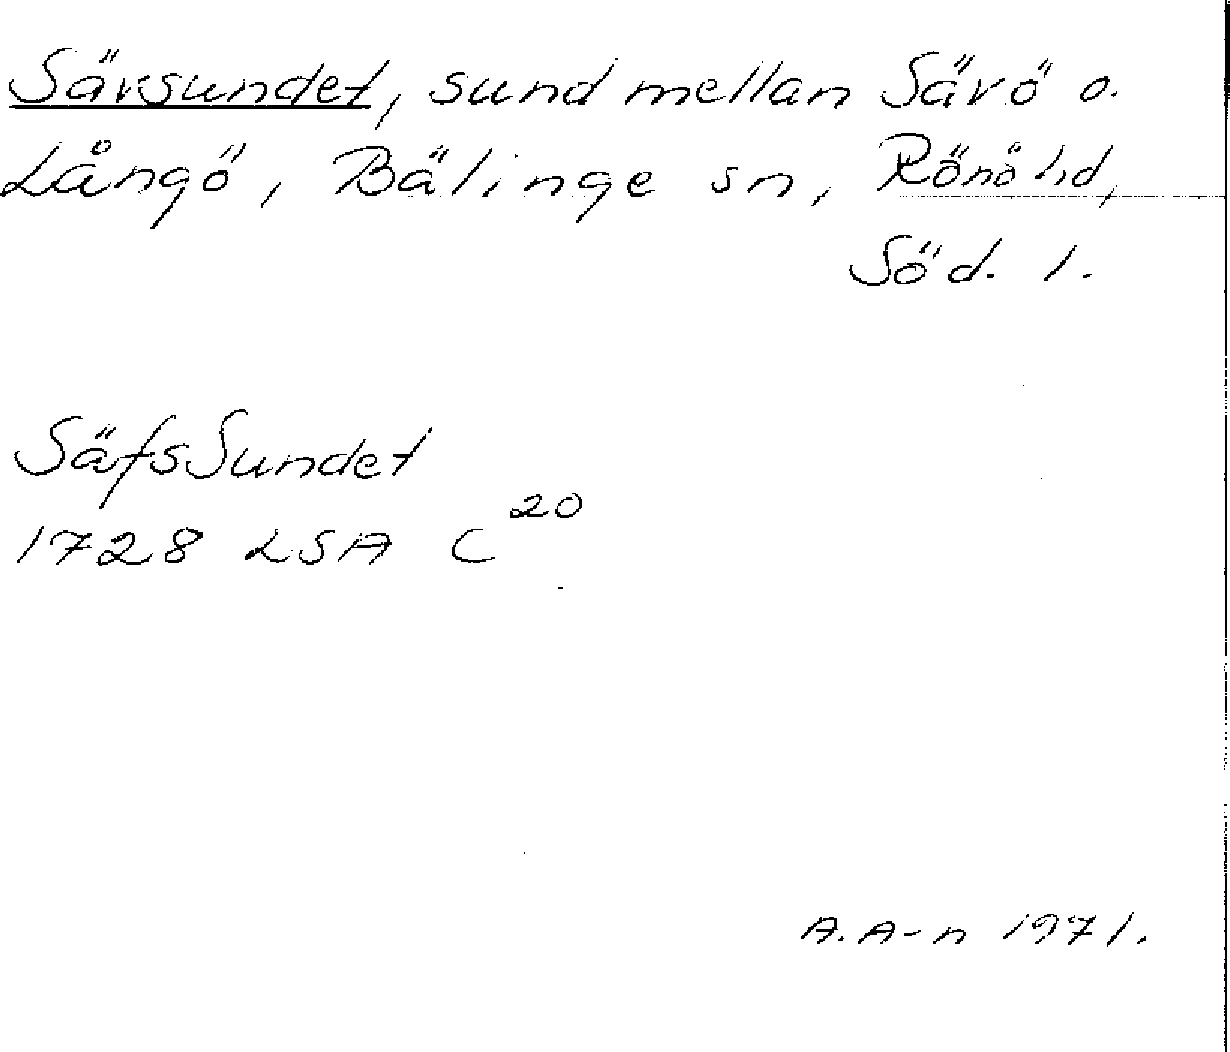 Sävsundet, sund mellan Sävö o.
Långö, Bälinge sn, Rönö hd,
Söd. l.
SäfsSundet
1728 LSA C20
A. A-n 1971.